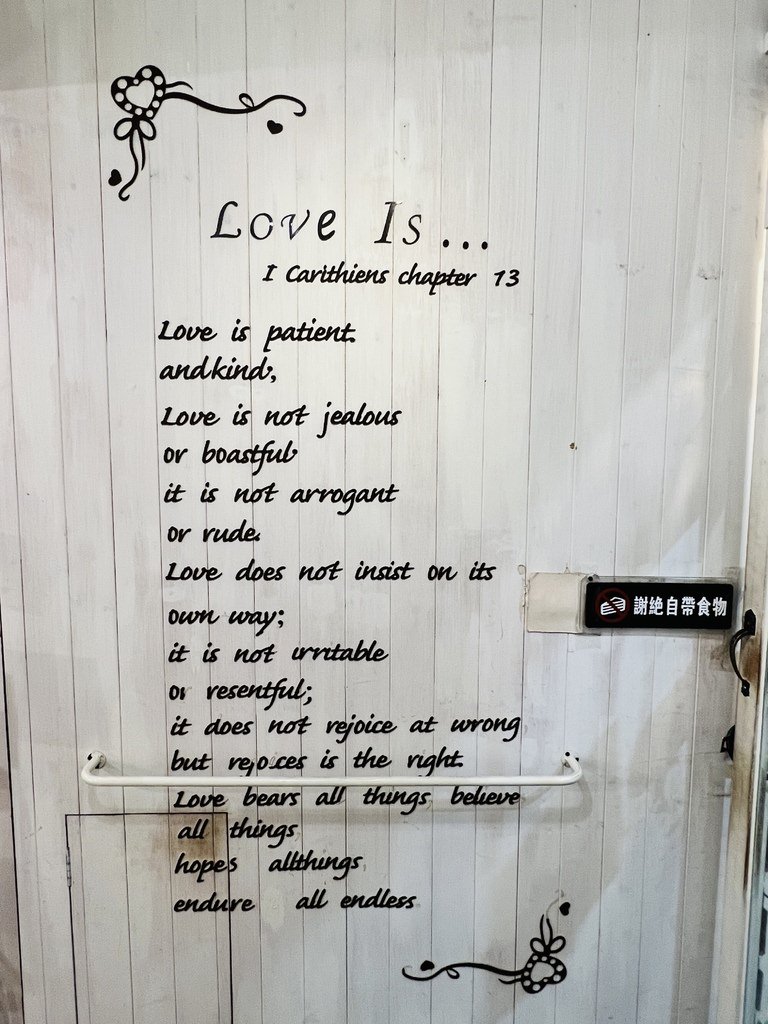 Love Is...
I Carithiens chapter 13
Love is patient.
andkind,
Love is not jealous
or boastful
it is not arrogant
or rude.
Love does not insist on its
own way;
it is not irritable
or resentful;
it does not rejoice at wrong
but rejoices is the right.
Love bears all things believe
all things
hopes allthings
endure all endless
謝絶自帶食物